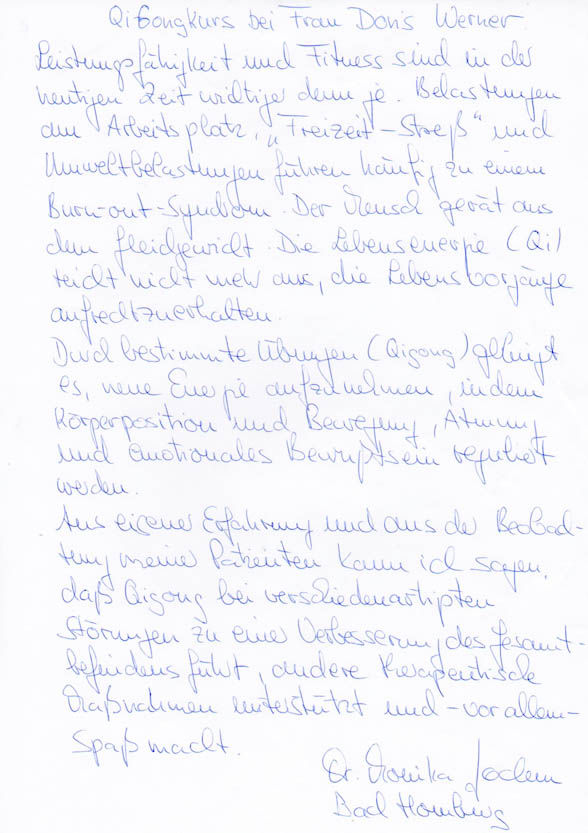 QiGongkurs bei Frau Doris Werner
Leistungsfähigkeit und Fitness sind in der
heutigen Zeit wichtiger denn je. Belastungen
am Arbeitsplatz, „Freizeit-Streß" und
Umweltbelastungen führen häufig zu einem
Burn-out-Syndrom. Der Mensch gerät aus
dem Gleichgewicht. Die Lebensenergie (Qi)
reicht nicht mehr aus, die Lebensvorgänge
aufrechtzuerhalten.
Durch bestimmte Übungen (Qigong) gelingt
es, neue Energie aufzunehmen, indem
Körperposition und Bewegung, Atmung
und emotionales Bewußtsein reguliert
werden.
Aus eigener Erfahrung und aus der Beobach-
tung meiner Patienten kann ich sagen,
daß Qigong bei verschiedenartigsten
Störungen zu einer Verbesserung des Gesamt-
befindens führt, andere therapeutische
Maßnahmen unterstützt und - vor allem -
Spaß macht.
Dr. Monika Jochem
Bad Homburg